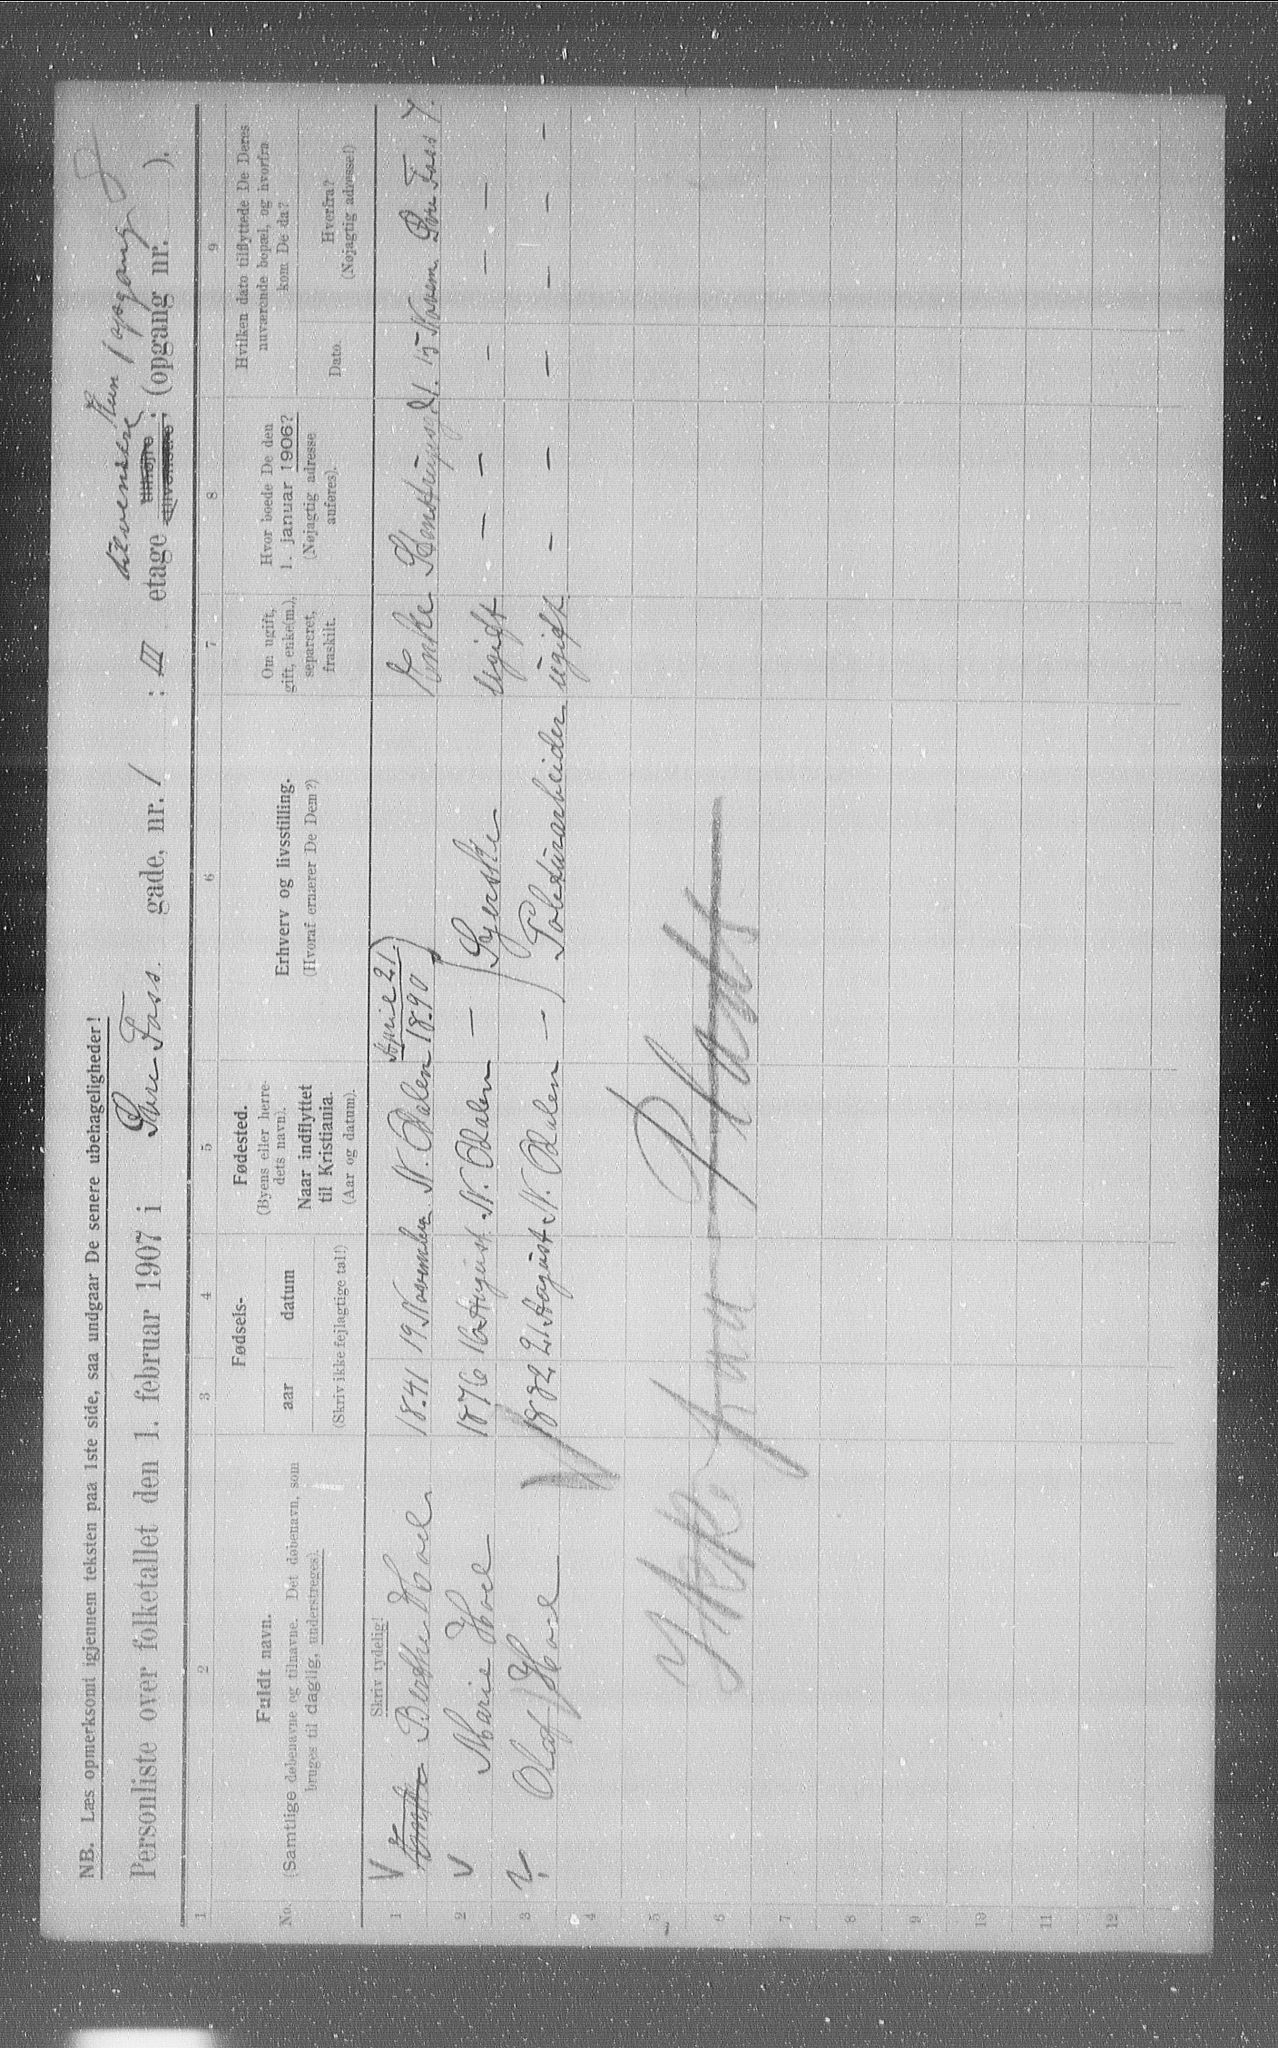 NB. Læs opmerksomt igjennem teksten paa 1ste side, saa undgaar De senere ubehageligheder!
tilvenstre Kun 1 opgang
Personliste over folketallet den 1. februar 1907 i Tore Foss. gade, nr. 1 : III etage tilhøjre tilvenstre; (opgang nr. ).
1 2 3 4 5 6 7 8 9
No.
Fuldt navn.
(Samtlige døbenavne og tilnavne. Det døbenavn, som
bruges til daglig, understreges).
Fødsels-
aar datum
(Skriv ikke fejlagtige tal!)
Fødested.
(Byens eller herre-
dets navn).
Naar indflyttet
til Kristiania.
(Aar og datum).
Erhverv og livsstilling.
(Hvoraf ernærer De Dem?)
Om ugift,
gift, enke(m.),
separeret,
fraskilt.
Hvor boede De den
1. januar 1906?
(Nøjagtig adresse
anføres).
Hvilken dato tilflyttede De Deres
nuværende bopæl, og hvorfra
kom De da?
Dato.
Hvorfra?
(Nøjagtig adresse!)
Skriv tydelig!
April 21.
1 Enke Berthe Hoel. 1841 19 November N. Odalen 1890 Enke 21. 15 Novem. Tore Foss 7.
2 Marie Hoel 1876 16 August N. Odalen — Syerske Ugift — — — — —
3 Olaf Hoel 1882 21 August N. Odalen — ugift — — — — — —
4
5
6 Ikke
7
8
9
10
11
12